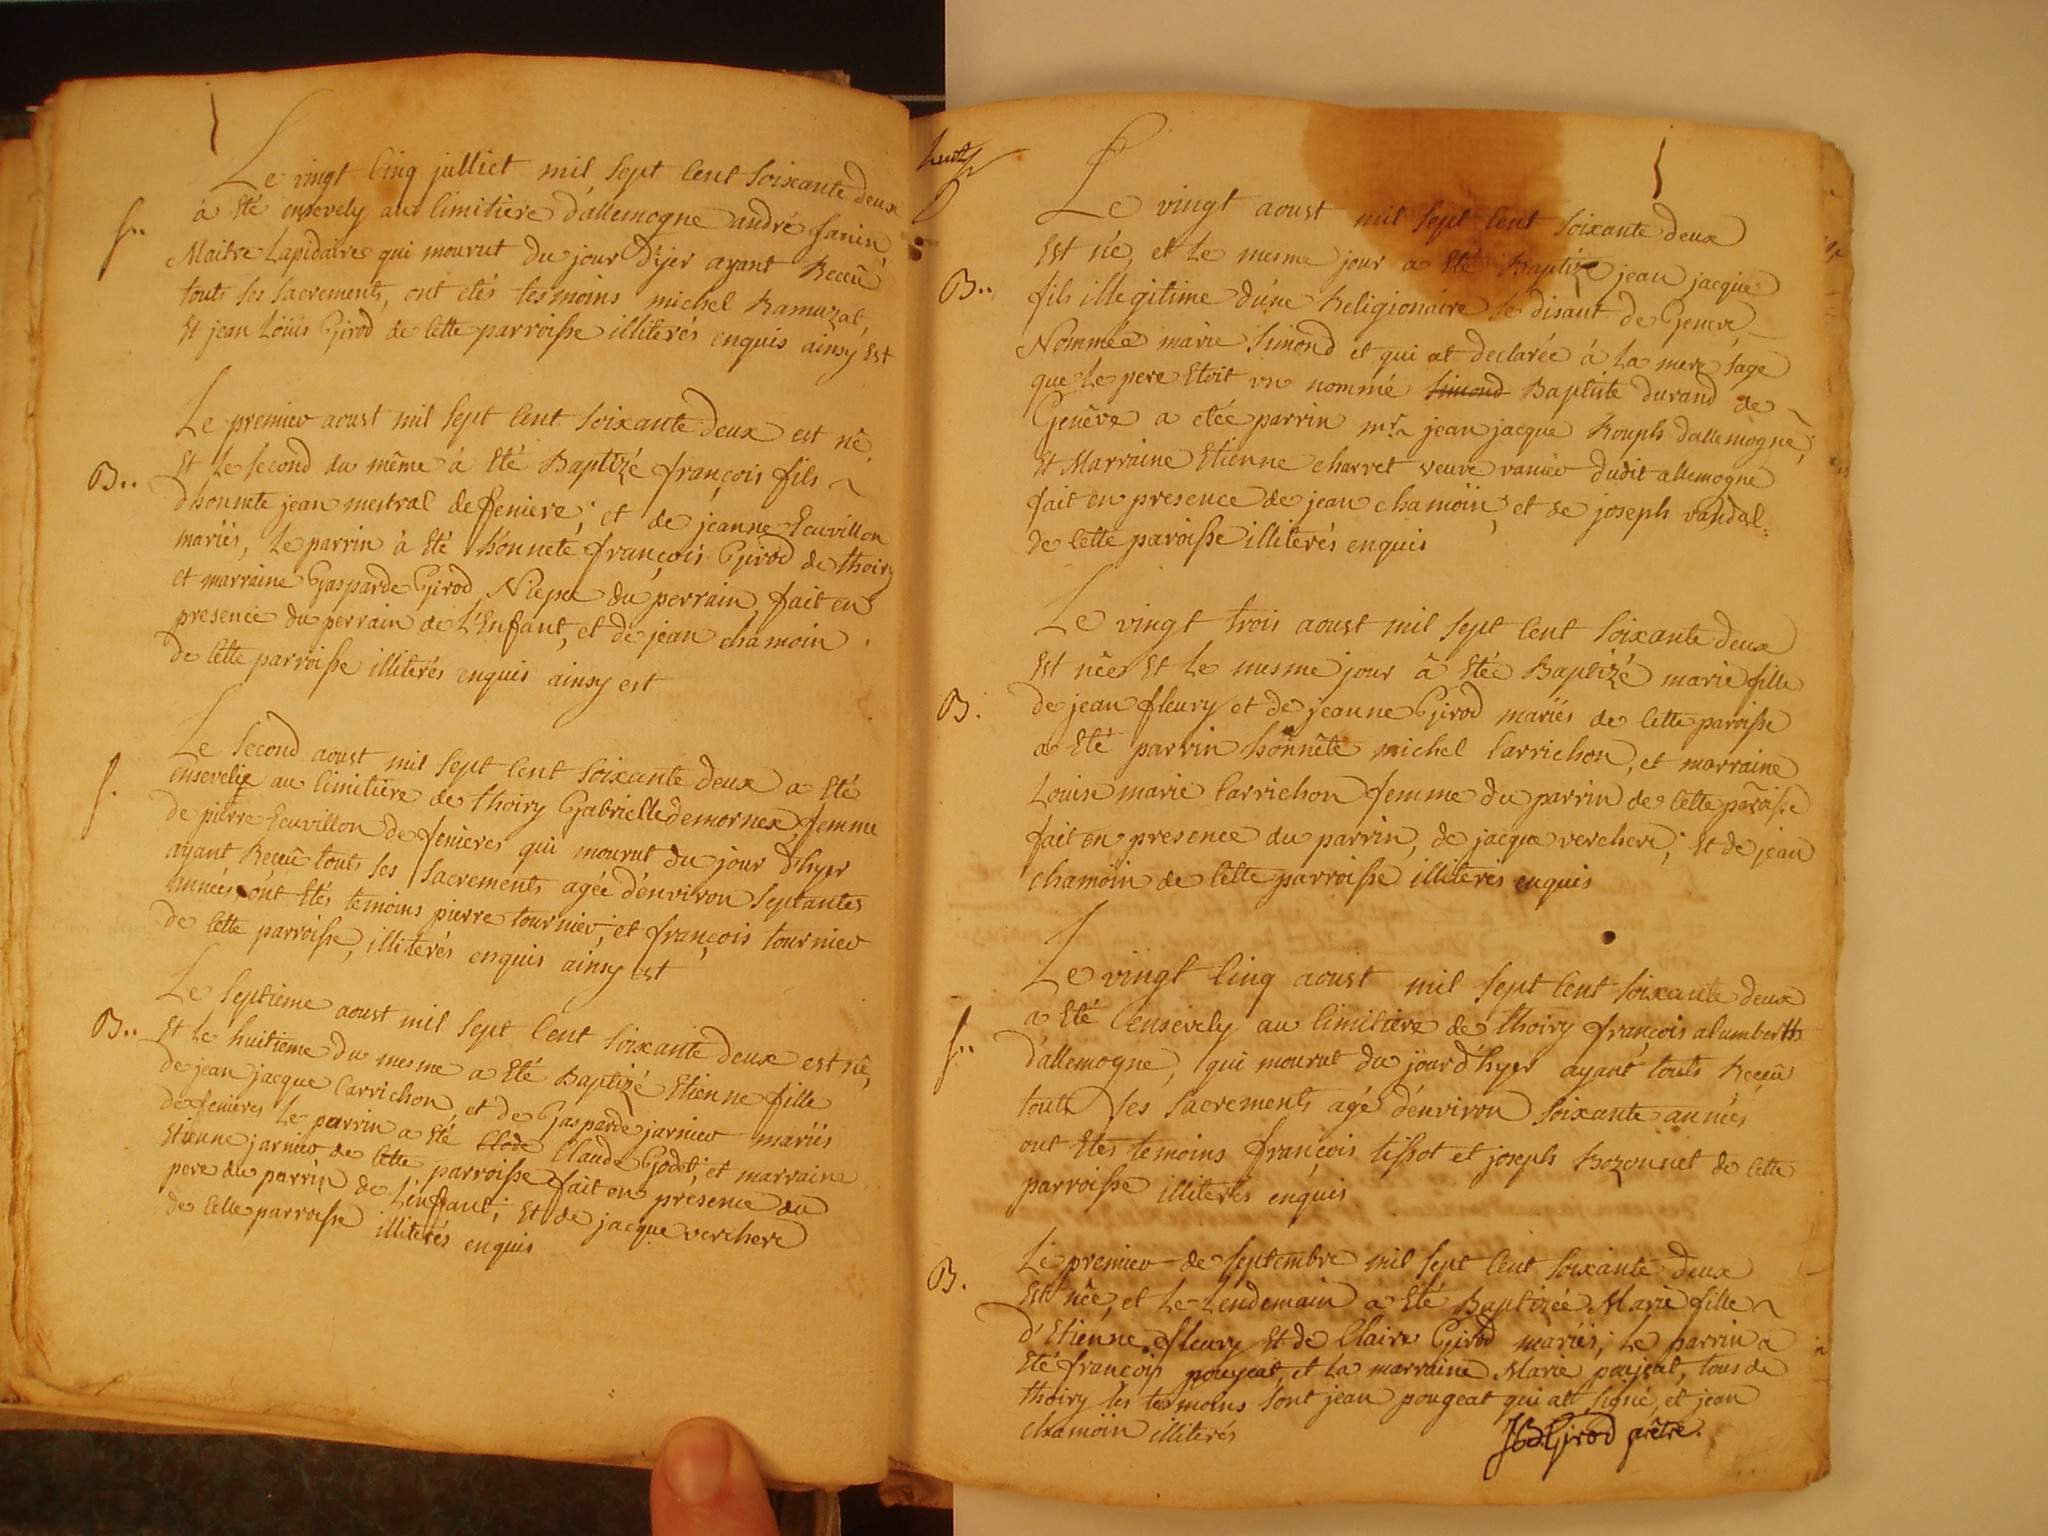 Le vingt cinq julliet mil sept cent soixante deux
S.. à Eté ensevely au cimitiere d'allemogne andré fanin,
Maitre Lapidaire qui mourut du jour d'yer ayant Receû
touts ses sacrements, ont etés tesmoins michel Ramuzat,
Et jean Loüis Girod de cette parroisse illiterés enquis ainsy Est
Le premier aoust mil sept cent soixante deux est né,
B.. Et le second du même à Eté Baptizé françois fils
d'honnete jean mestral de feniere; et de jeanne Ecuvillon
mariés, le parrin à Eté honnete françois Girod de thoiry
et marraine Gasparde Girod Niepce du perrain fait en
presence du perrain de L'Enfant, et de jean chamoin
de cette parroisse illiterés enquis ainsy est
Le second aoust mil sept cent soixante deux a Eté
S. ensevelie au cimitiere de thoiry Gabrielle demornex femme
de pierre Ecuvillon de fenieres qui mourut du jour d'hyer
ayant Receû touts ses sacrements agée d'environ septantes
années, ont Etés temoins pierre tournier; et françois tournier
de cette parroisse, illiterés enquis ainsy est
Le septieme aoust mil sept cent soixante deux est né,
B.. Et le huitieme du mesme a Eté Baptizé Etienne fille
de jean jacque Carrichon, et de Gasparde jarnier mariés
de fenieres le parrin a Eté Clode Claude Godet; et marraine
Etienne jarnier de cette parroisse fait en presence du
pere du parrin de L'enfant; Et de jacque verchere
de cette parroisse illiterés enquis
huit
Le vingt aoust mil sept cent soixante deux
Est né, et le mesme jour a Eté Baptizé jean jacque
B.. fils illegitime d'une Religionaire se disant de Geneve,
Nommée marie simond et qui at declarée à la mere sage
que le pere Etoit un nommé simond Baptiste durand de
Genêve a etée parrin mr. jean jacque Rouph d'allemogne,
Et Marraine Etienne charret veuve vanier dudit allemogne
fait en presence de jean chamoin, et de joseph vandal
de cette paroisse illiterés enquis
Le vingt trois aoust mil sept cent soixante deux
Est née Et le mesme jour â Etée Baptizé marie fille
B. de jean fleury et de jeanne Girod mariés de cette paroisse
a Eté parrin honnête michel Carrichon, et marraine
Louise marie Carrichon femme du parrin de cette paroisse
fait en presence du parrin, de jacque verchere; Et de jean
chamoin de cette parroisse illiterés enquis
Le vingt cinq aoust mil sept cent soixante deux
a Eté ensevely au cimitiere de thoiry françois alumberth
S.. d'allemogne, qui mourut du jour d'hyer ayant touts Receû
touts ses sacrements agé d'environ soixante années
ont Etes temoins françois tissot et joseph Rozonnet de cette
parroisse illiterés enquis
Le premier de septembre mil sept cent soixante deux
B. Est née, et le lendemain a Eté Baptizée Marie fille
d'Etienne fleury Et de Claire Girod mariés; le parrin a
Eté françois pougeat, et la marraine Marie poujeat, tous de
thoiry les tesmoins sont jean pougeat qui at signé, et jean
chamoin illiterés
JB. Girod prêtre.